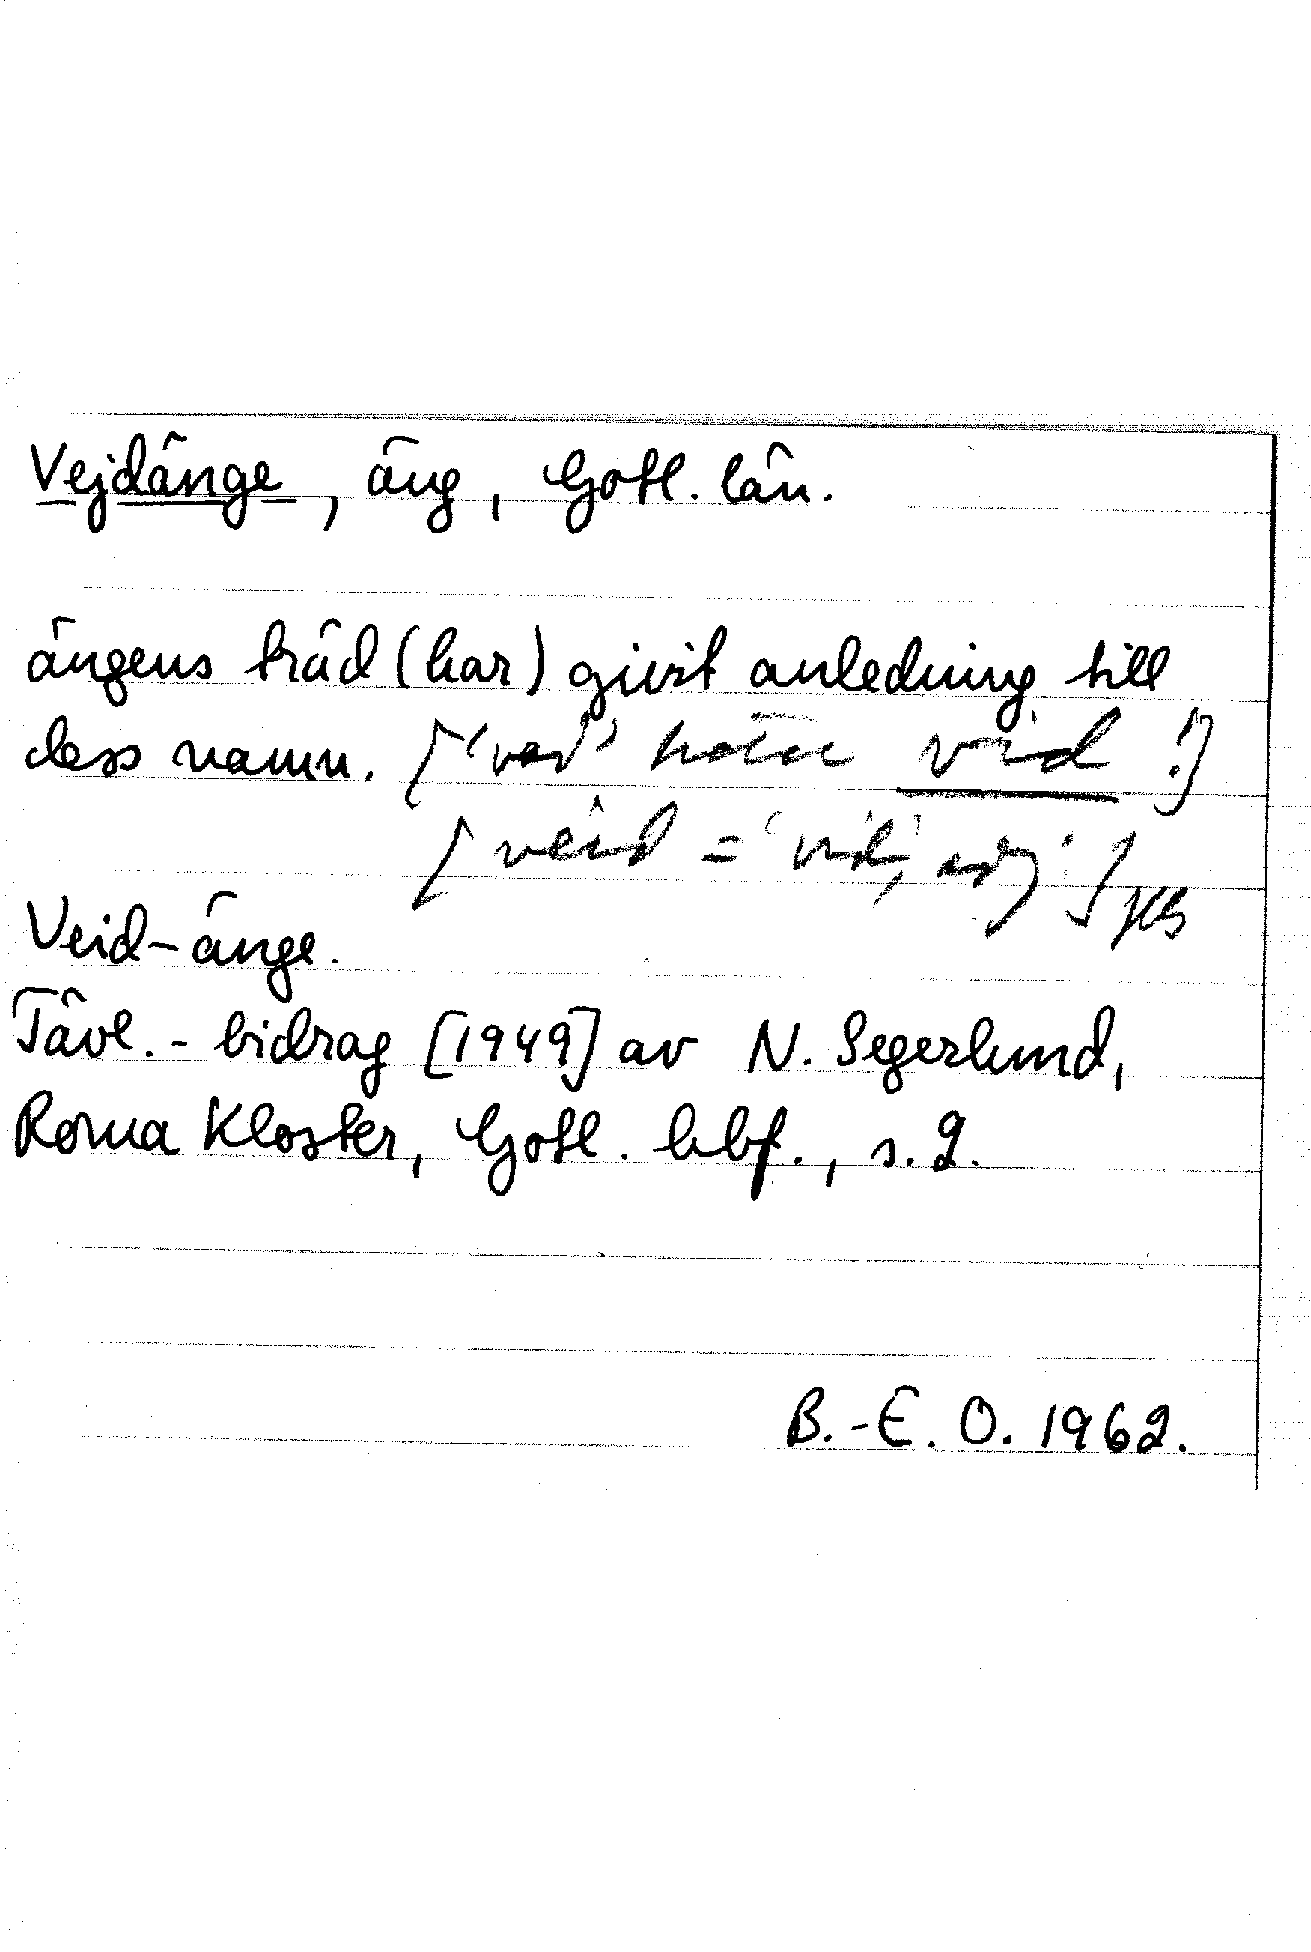 Vejdänge, äng, Gotl. län.
ängens träd (har) givit anledning till
dess namn. ['ved' vid !]
[veid = 'vid', adj.] HG
Veid-änge.
Tävl.-bidrag [1949] av N. Segerlund,
Roma Kloster, Gotl. hbf., s. 2.
B.-E. O. 1962.